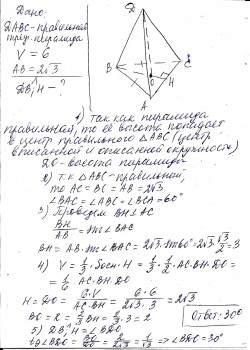 Дано:
DABC-правильная
треуг. пирамида
V = 6
AB = 2√3
DB^H - ?
D
B
C
O
H
A
1) Так как пирамида
правильная, то её высота попадает
в центр правильного △ABC (центр
вписанной и описанной окружности)
DO-высота пирамиды
2) т.к △ABC-правильный,
то AC = BC = AB = 2√3
∠BAC = ∠ABC = ∠BCA = 60°
3) Проведём BH⊥AC
BH/AB = sin∠BAC
BH = AB·sin∠BAC = 2√3·sin60° = 2√3·√3/2 = 3
4) V = 1/3·Sосн·H = 1/3·1/2·AC·BH·DO =
= 1/6 AC·BH·DO
H = DO = 6·V/AC·BH = 6·6/2√3·3 = 2√3
BO = 2/3 BH = 2/3·3 = 2
5) DB^H = ∠BDO
tg∠BDO = BO/DO = 2/2√3 = 1/√3 ⇒ ∠BDO = 30°
Ответ: 30°